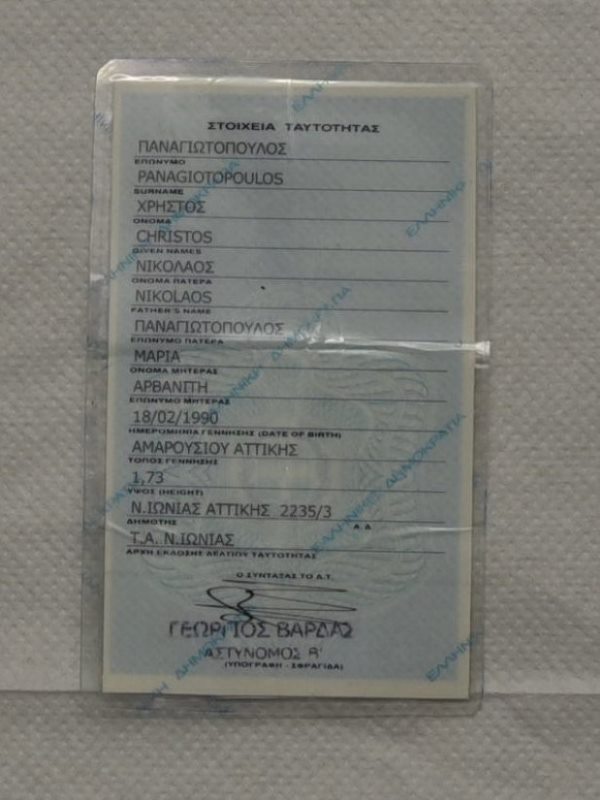 ΣΤΟΙΧΕΙΑ ΤΑΥΤΟΤΗΤΑΣ
ΠΑΝΑΓΙΩΤΟΠΟΥΛΟΣ
ΕΠΩΝΥΜΟ
PANAGIOTOPOULOS
SURNAME
ΧΡΗΣΤΟΣ
ΟΝΟΜΑ
CHRISTOS
GIVEN NAMES
ΝΙΚΟΛΑΟΣ
ΟΝΟΜΑ ΠΑΤΕΡΑ
NIKOLAOS
FATHER'S NAME
ΠΑΝΑΓΙΩΤΟΠΟΥΛΟΣ
ΕΠΩΝΥΜΟ ΠΑΤΕΡΑ
ΜΑΡΙΑ
ΟΝΟΜΑ ΜΗΤΕΡΑΣ
ΑΡΒΑΝΙΤΗ
ΕΠΩΝΥΜΟ ΜΗΤΕΡΑΣ
18/02/1990
ΗΜΕΡΟΜΗΝΙΑ ΓΕΝΝΗΣΗΣ (DATE OF BIRTH)
ΑΜΑΡΟΥΣΙΟΥ ΑΤΤΙΚΗΣ
ΤΟΠΟΣ ΓΕΝΝΗΣΗΣ
1,73
ΥΨΟΣ (HEIGHT)
Ν.ΙΩΝΙΑΣ ΑΤΤΙΚΗΣ 2235/3
ΔΗΜΟΤΗΣ Α.Α
Τ.Α. Ν.ΙΩΝΙΑΣ
ΑΡΧΗ ΕΚΔΟΣΗΣ ΔΕΛΤΙΟΥ ΤΑΥΤΟΤΗΤΑΣ
Ο ΣΥΝΤΑΞΑΣ ΤΟ Δ.Τ.
ΓΕΩΡΓΙΟΣ ΒΑΡΔΑΣ
ΑΣΤΥΝΟΜΟΣ Β'
(ΥΠΟΓΡΑΦΗ - ΣΦΡΑΓΙΔΑ)
ΕΛΛΗΝΙΚΗ ΔΗΜΟΚΡΑΤΙΑ